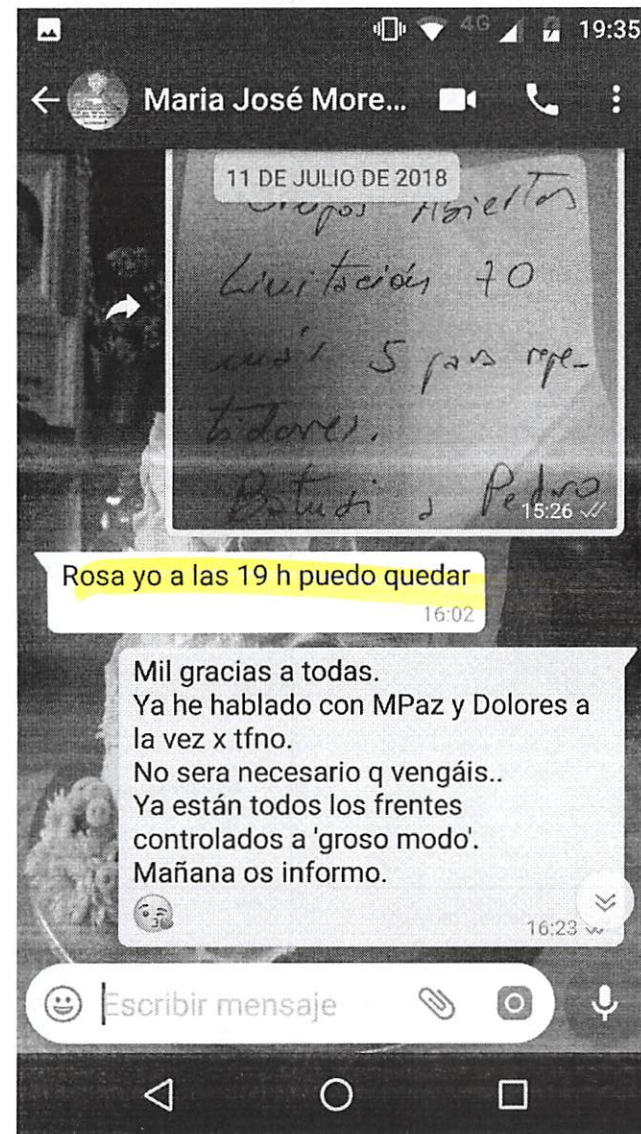 4G 19:35
Maria José More...
11 DE JULIO DE 2018
Grupos Abiertos
Limitación 70
más 5 para repe-
tidores.
a Pedro
15:26
Rosa yo a las 19 h puedo quedar
16:02
Mil gracias a todas.
Ya he hablado con MPaz y Dolores a
la vez x tfno.
No sera necesario q vengáis..
Ya están todos los frentes
controlados a 'groso modo'.
Mañana os informo.
16:23
Escribir mensaje